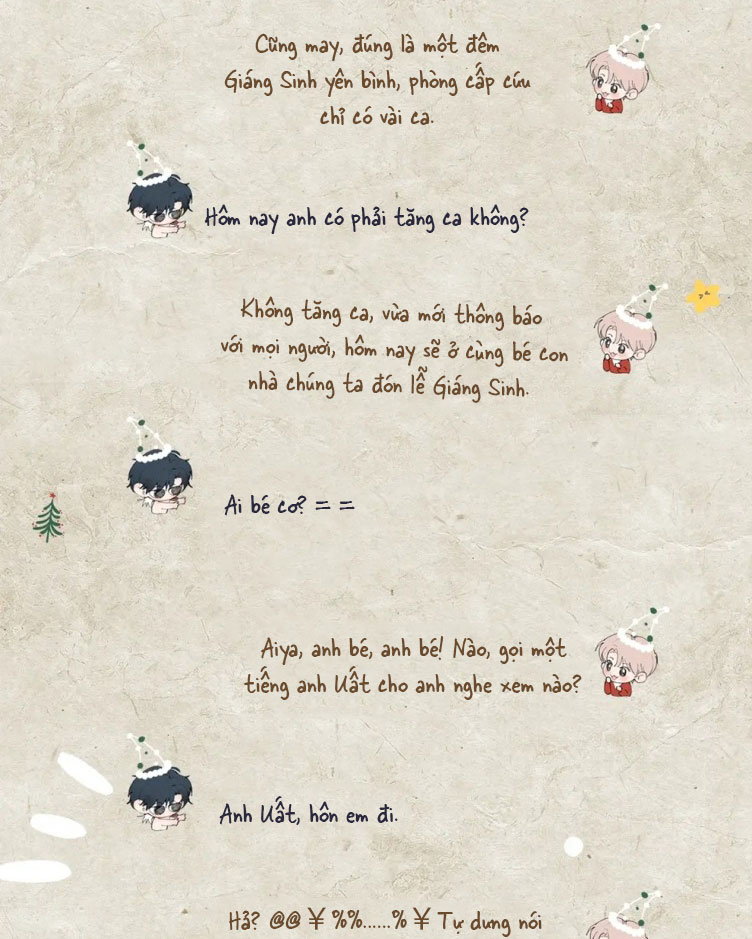 Cũng may, đúng là một đêm
Giáng Sinh yên bình, phòng cấp cứu
chỉ có vài ca.
Hôm nay anh có phải tăng ca không?
Không tăng ca, vừa mới thông báo
với mọi người, hôm nay sẽ ở cùng bé con
nhà chúng ta đón lễ Giáng Sinh.
Ai bé cơ? = =
Aiya, anh bé, anh bé! Nào, gọi một
tiếng anh Uất cho anh nghe xem nào?
Anh Uất, hôn em đi.
Hả? @@￥%%......%￥Tự dưng nói